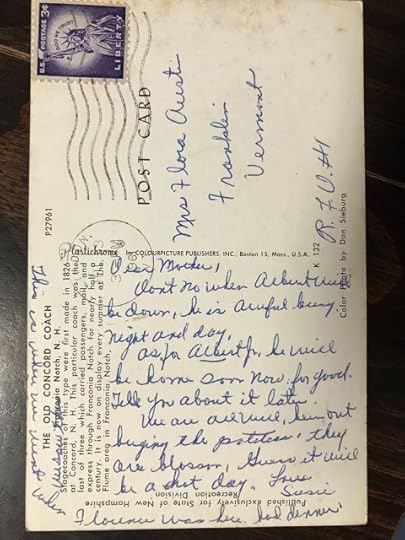 U.S. POSTAGE 3¢
LIBERTY
POST CARD
Mrs Flora Austin
Franklin
Vermont
R.F.D. #1
P27961
Plastichrome by COLOURPICTURE PUBLISHERS, INC., Boston 15, Mass., U.S.A.
K 132
Color Photo by Don Sieburg
THE OLD CONCORD COACH
Franconia Notch, N. H.
Stagecoaches of this type were first made in 1826
at Concord, N. H. This particular coach was the
last of three which carried passengers, mail, and
express through Franconia Notch for nearly half a
century. It is now on display every summer at the
Flume area in Franconia Notch.
Published exclusively for State of New Hampshire
Recreation Division
Dear Mother,
Dont no when Albert will
be down, he is awful busy.
Night and day.
as for Albert Jr, he will
be home soon now for good.
Tell you about it later.
We are all well, been out
buging the potatoes, they
are blosom, Guess it will
be a hot day. Love
Susie
Florence was here, had dinner
This is where we went when